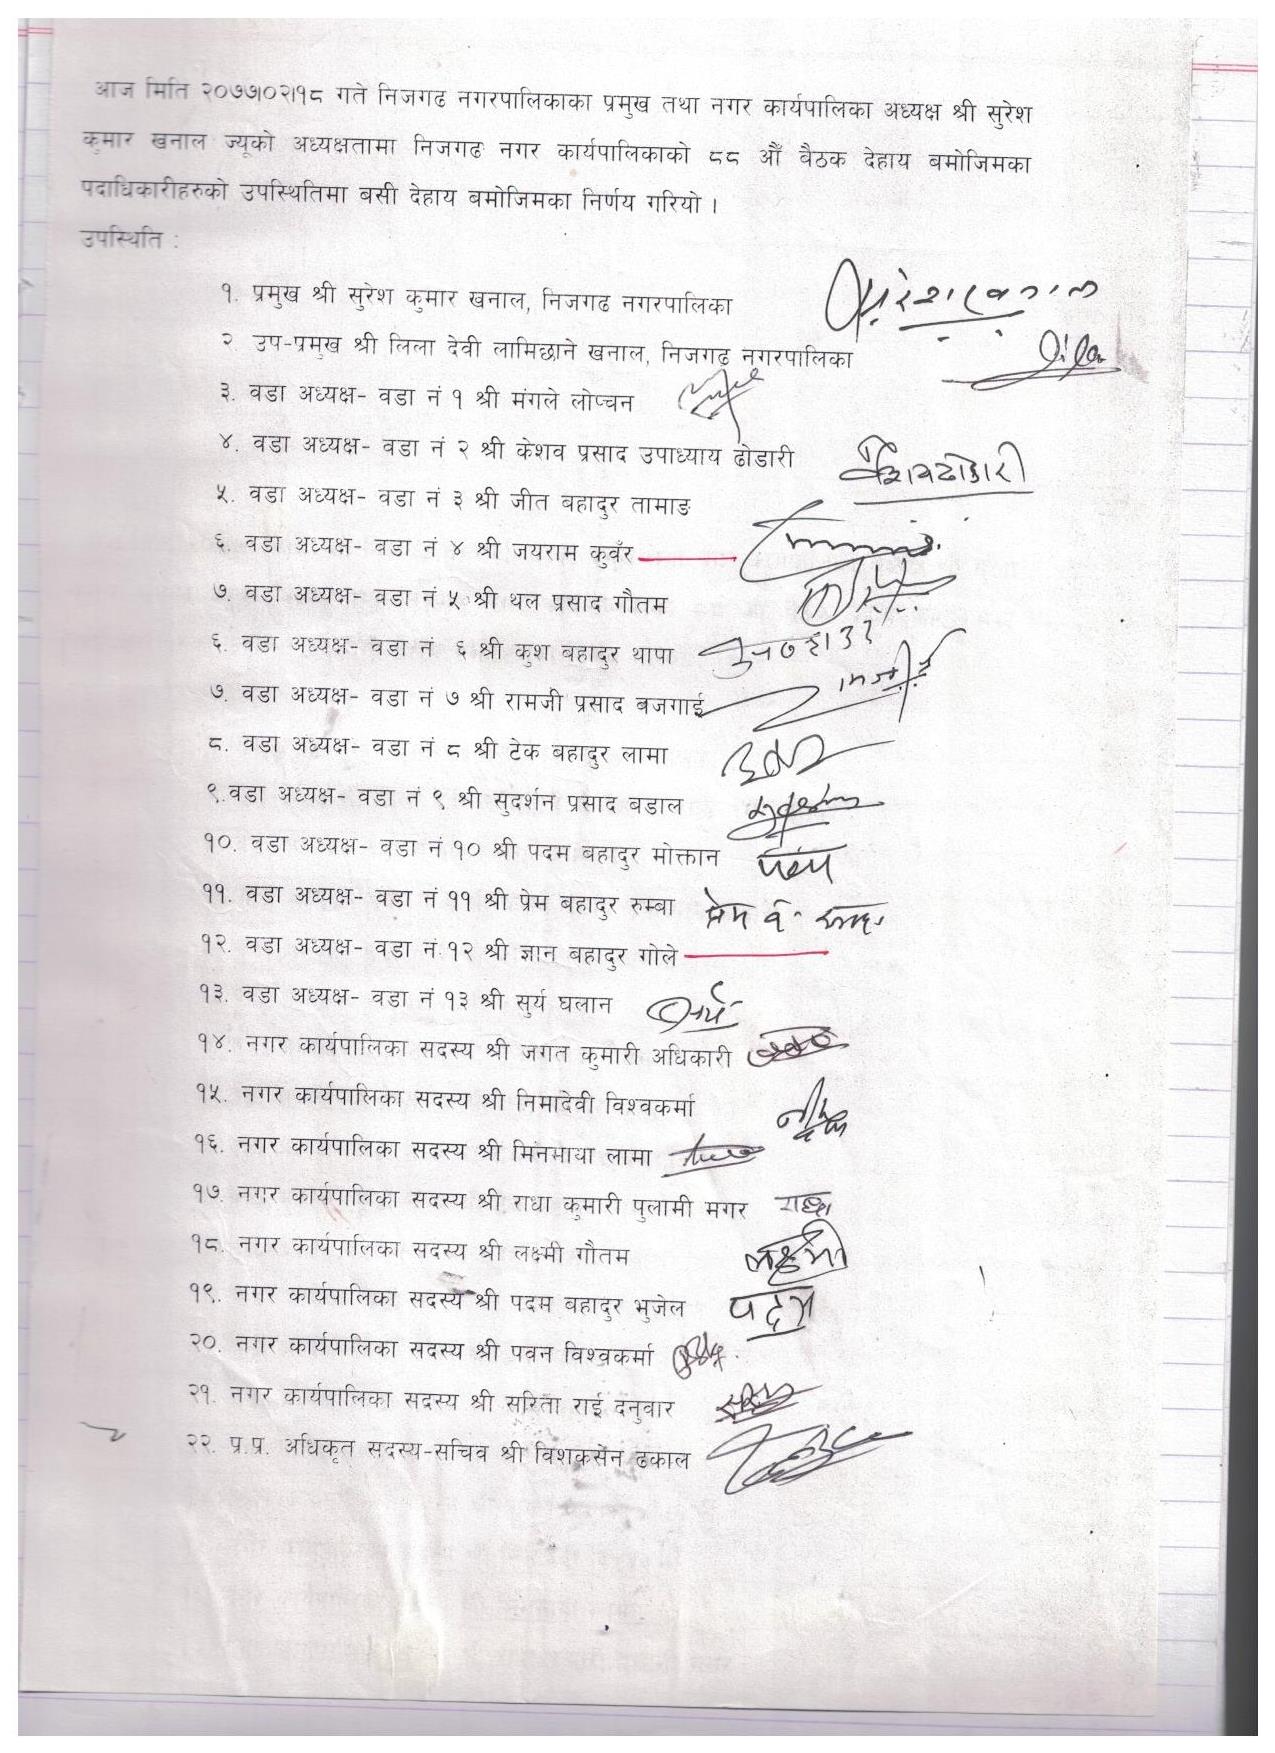 आज मिति २०७७।०२।१८ गते निजगढ नगरपालिकाका प्रमुख तथा नगर कार्यपालिका अध्यक्ष श्री सुरेश
कुमार खनाल ज्यूको अध्यक्षतामा निजगढ नगर कार्यपालिकाको ८८ औँ बैठक देहाय बमोजिमका
पदाधिकारीहरुको उपस्थितिमा बसी देहाय बमोजिमका निर्णय गरियो ।
उपस्थिति :
१. प्रमुख श्री सुरेश कुमार खनाल, निजगढ नगरपालिका
२ उप-प्रमुख श्री लिला देवी लामिछाने खनाल, निजगढ नगरपालिका
३. वडा अध्यक्ष- वडा नं १ श्री मंगले लोप्चन
४. वडा अध्यक्ष- वडा नं २ श्री केशव प्रसाद उपाध्याय ढोडारी केशव ढोडारी
५. वडा अध्यक्ष- वडा नं ३ श्री जीत बहादुर तामाङ
६. वडा अध्यक्ष- वडा नं ४ श्री जयराम कुवँर
७. वडा अध्यक्ष- वडा नं ५ श्री थल प्रसाद गौतम
६. वडा अध्यक्ष- वडा नं ६ श्री कुश बहादुर थापा
७. वडा अध्यक्ष- वडा नं ७ श्री रामजी प्रसाद बजगाई
८. वडा अध्यक्ष- वडा नं ८ श्री टेक बहादुर लामा
९.वडा अध्यक्ष- वडा नं ९ श्री सुदर्शन प्रसाद बडाल
१०. वडा अध्यक्ष- वडा नं १० श्री पदम बहादुर मोक्तान
११. वडा अध्यक्ष- वडा नं ११ श्री प्रेम बहादुर रुम्बा प्रेम व.
१२. वडा अध्यक्ष- वडा नं १२ श्री ज्ञान बहादुर गोले
१३. वडा अध्यक्ष- वडा नं १३ श्री सुर्य घलान
१४. नगर कार्यपालिका सदस्य श्री जगत कुमारी अधिकारी
१५. नगर कार्यपालिका सदस्य श्री निमादेवी विश्वकर्मा
१६. नगर कार्यपालिका सदस्य श्री मिनमाया लामा
१७. नगर कार्यपालिका सदस्य श्री राधा कुमारी पुलामी मगर
१८. नगर कार्यपालिका सदस्य श्री लक्ष्मी गौतम लक्ष्मी
१९. नगर कार्यपालिका सदस्य श्री पदम बहादुर भुजेल पदम
२०. नगर कार्यपालिका सदस्य श्री पवन विश्वकर्मा
२१. नगर कार्यपालिका सदस्य श्री सरिता राई दनुवार
२२. प्र.प्र. अधिकृत सदस्य-सचिव श्री विशकसेन ढकाल